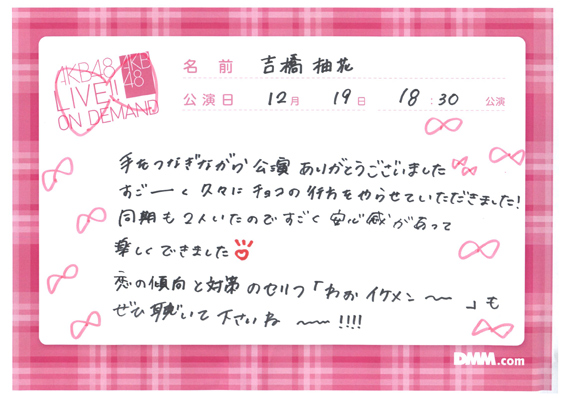 AKB48
LIVE!!
ON DEMAND
AKB
48
名前 吉橋柚花
公演日 12月 19日 18:30 公演
手をつなぎながら 公演 ありがとうございました
すごーく 久々に チョコの行方をやらせていただきました!
同期も 2人いたのですごく 安心感があって
楽しくできました
恋の傾向と対策のセリフ「わお イケメン〜〜」も
ぜひ 聴いて 下さいね 〜〜!!!!
DMM.com